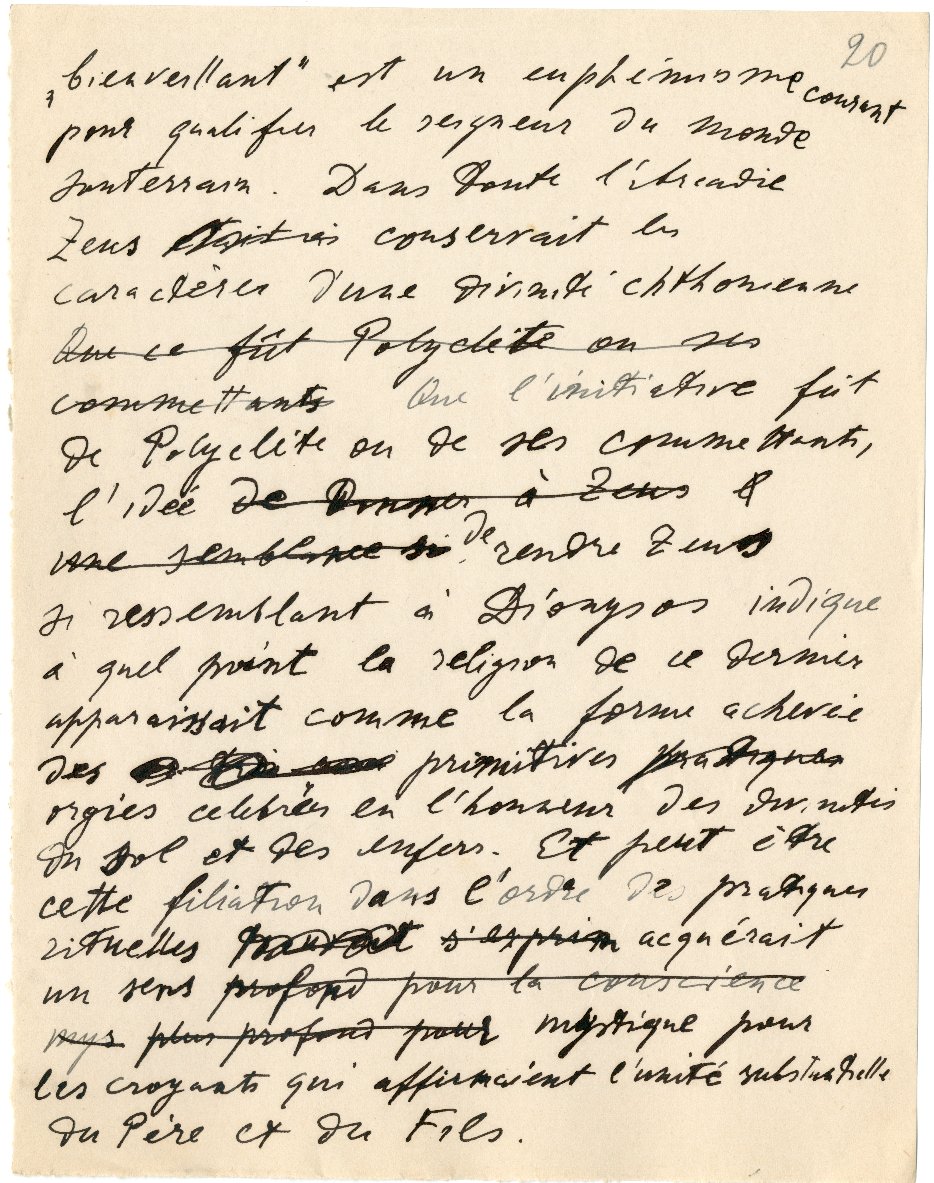 20
„bienveillant" est un euphémisme courant
pour qualifier le seigneur du monde
souterrain. Dans toute l'Arcadie
Zeus conservait les
caractères d'une divinité chthonienne
Que ce fût Polyclète ou ses
commettants Que l'initiative fût
de Polyclète ou de ses commettants,
l'idée de donner à Zeus
une semblance si de rendre Zeus
si ressemblant à Dionysos indique
à quel point la religion de ce dernier
apparaissait comme la forme achevée
des primitives pratiques
orgies celebrées en l'honneur des divinités
du sol et des enfers. Et peut être
cette filiation dans l'ordre des pratiques
rituelles s'exprim acquérait
un sens profond pour la conscience
mys plus profond pour mystique pour
les croyants qui affirmaient l'unité substantielle
du Père et du Fils.